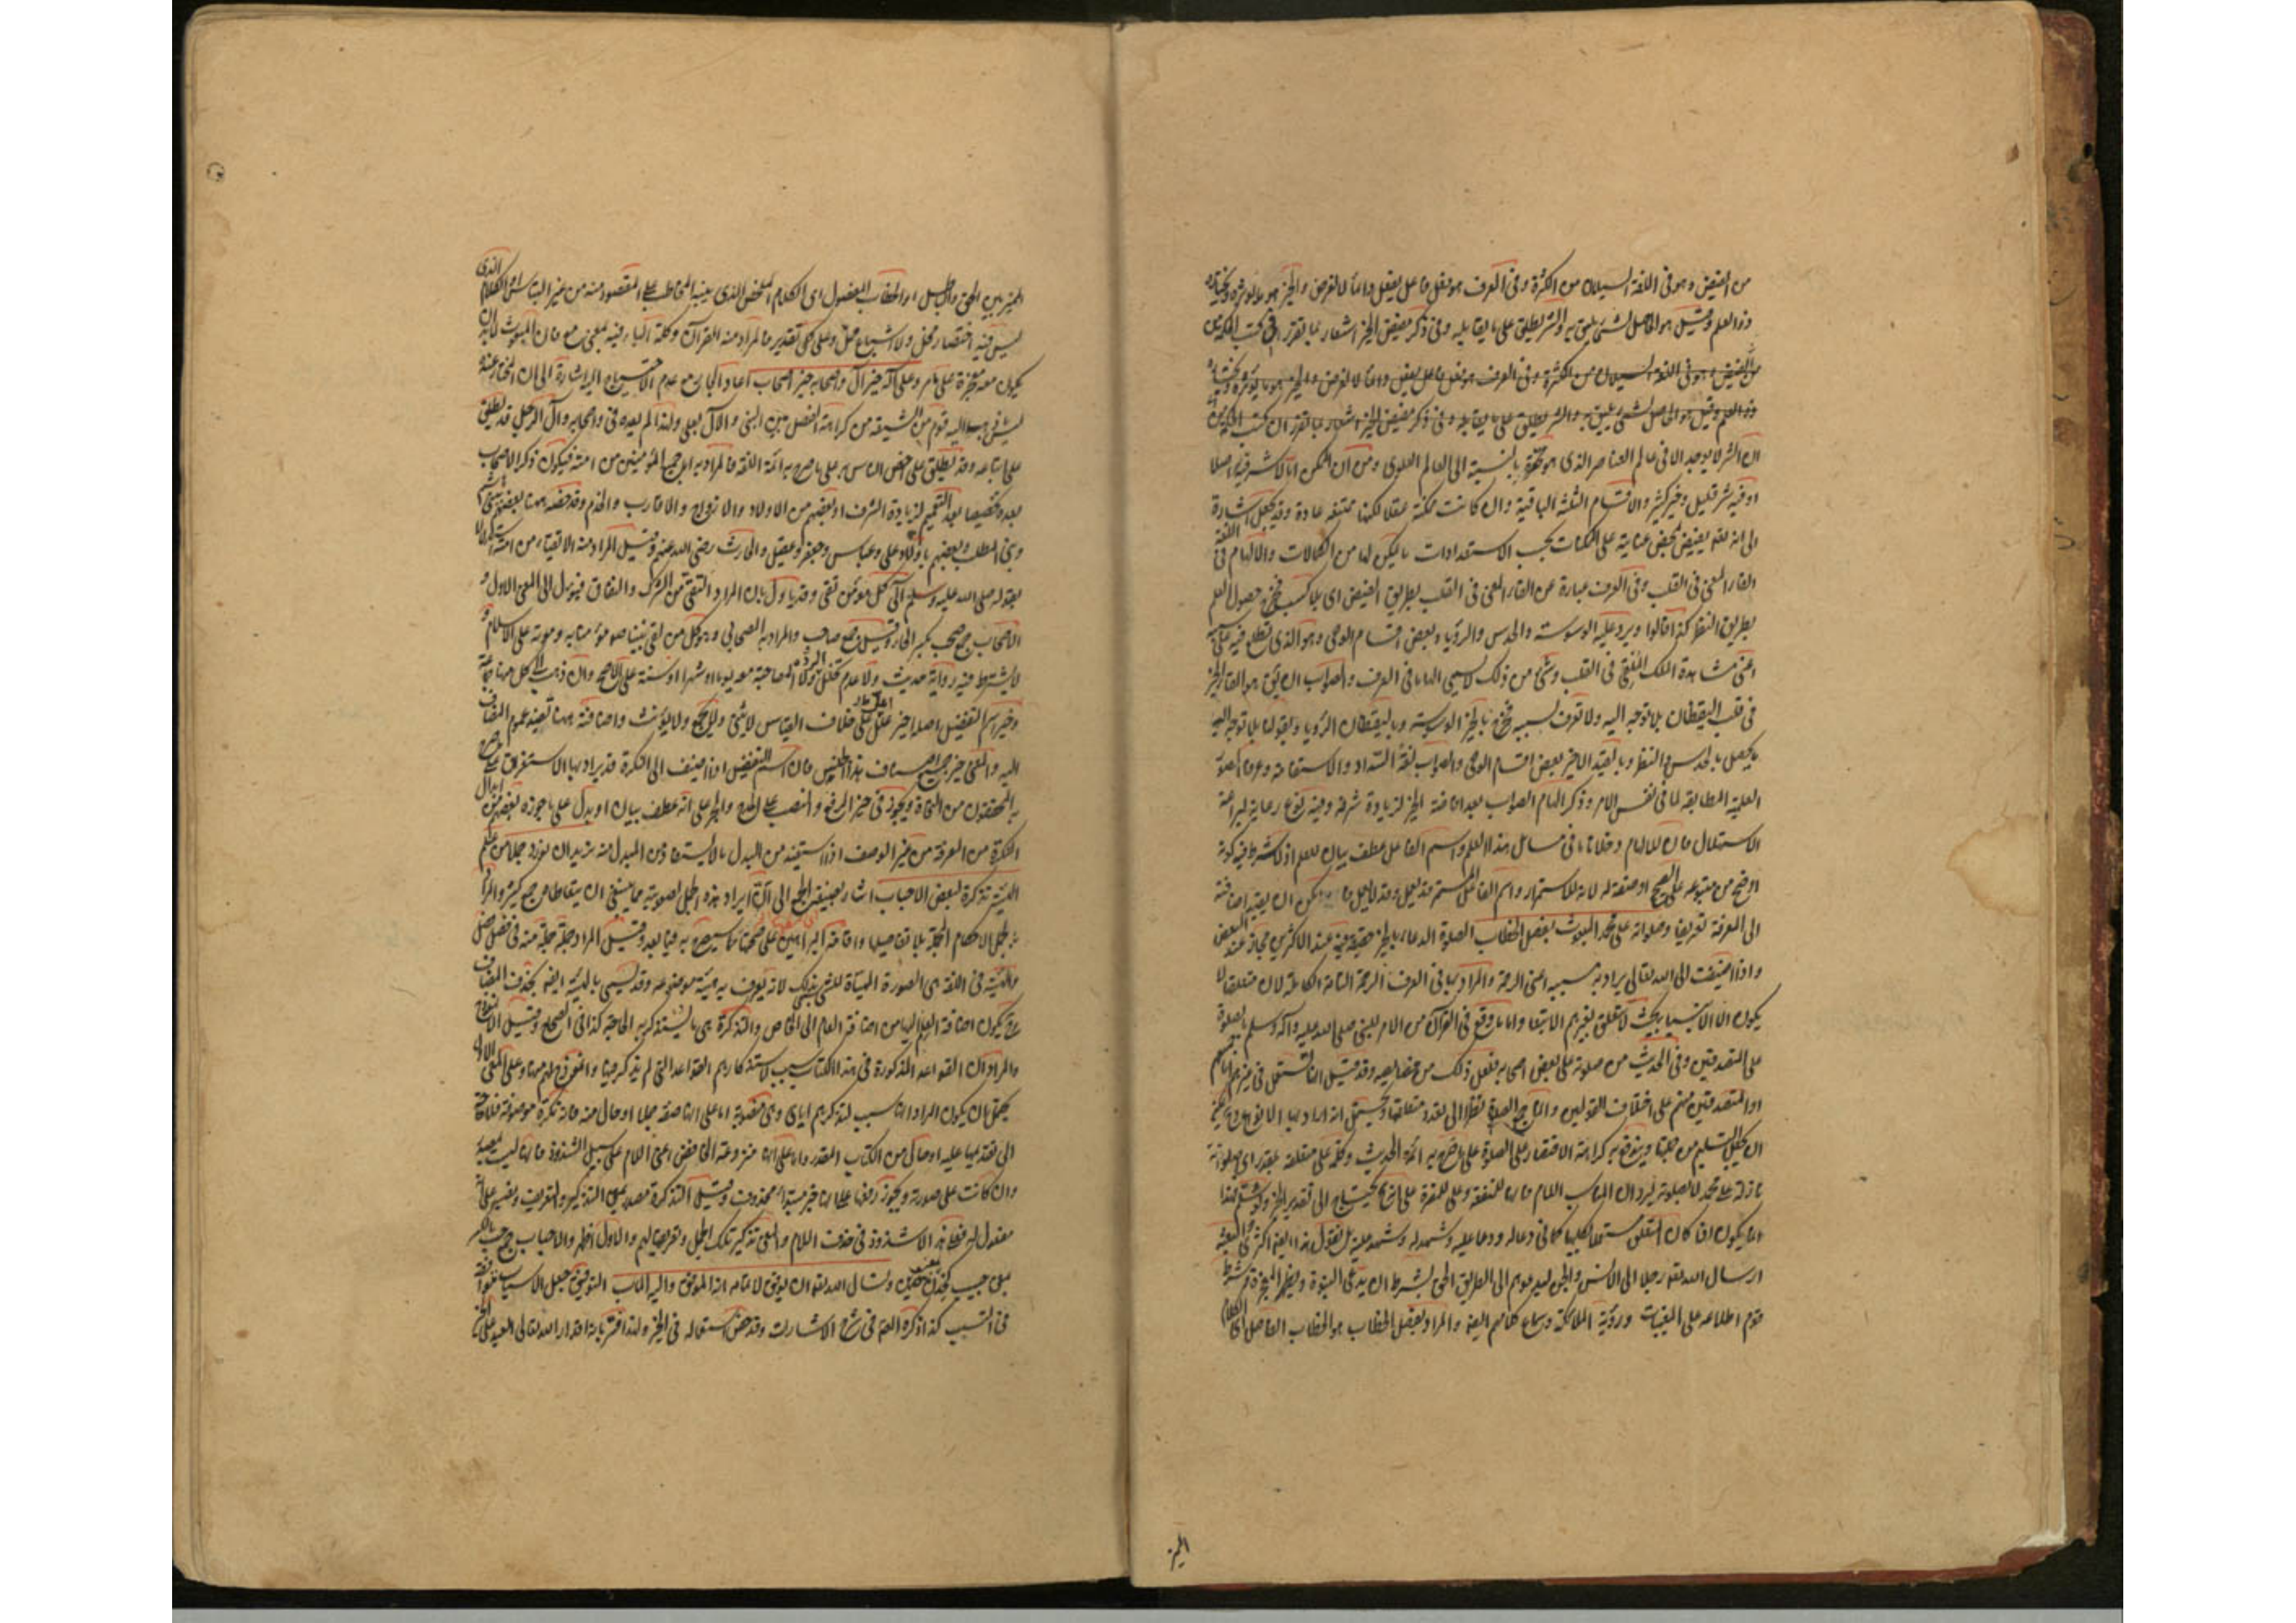 من الفيض وهو في اللغة السيلان من الكثرة وفي العرف هو فعل فاعل يفعل دائما لا لغرض والخير هو ما يؤثره ويختاره
ذو العلم وقيل هو الحاصل لشئ يليق به والشر يطلق على ما يقابله وفي ذكر مفيض الخير اشعار بما تقرر في كتب الحكمة من
من الفيض وهو في اللغة السيلان من الكثرة وفي العرف هو فعل فاعل يفعل دائما لا لغرض والخير هو ما يؤثره ويختاره
ذو العلم وقيل هو الحاصل لشئ يليق به والشر يطلق على ما يقابله وفي ذكر مفيض الخير اشعار بما تقرر
ان الشر لا يوجد الا في عالم العناصر الذي هو بالنسبة الى العالم العلوي ومن ان الممكن اما لا شر فيه اصلا
او فيه شر قليل وخير كثير والاقسام الثلثة الباقية وان كانت ممكنة عقلا لكنها ممتنعة عادة وقد يجعل اشارة
الى انه تعه يفيض بمحض عنايته على الممكنات بحسب الاستعدادات ما يليق لها من الكمالات والالهام في اللغة
القاء المعنى في القلب وفي العرف عبارة عن القاء المعنى في القلب بطريق الفيض اي بلا كسب فخرج حصول العلم
بطريق النظر كذا قالوا ويرد عليه الوسوسة والحدس والرؤيا وبعض اقسام الوحي وهو الذي
اعني مشاهدة الملك الملقي في القلب وشئ من ذلك لا يسمى الهاما في العرف والصواب ان يق هو القاء الخير
في قلب اليقظان بلا توجه اليه ولا تعرف لسببه فخرج بالخير الوسوسة وباليقظان الرؤيا وبقولنا بلا توجه اليه
ما يحصل بالحدس والنظر وبالقيد الاخير بعض اقسام الوحي والصواب لغة السداد والاستقامة وعرفا الصورة
العلمية المطابقة لما في نفس الامر وذكر الهام الصواب بعد افاضة الخير لزيادة شرفه وفيه نوع رعاية لبراعة
الاستهلال فان للالهام دخلا تاما في مسائل هذا العلم واسم الفاعل عطف بيان للعلم اذ لا يشترط فيه كونه
اوضح من متبوعه على الصحيح او صفة له لانه للاستمرار واسم الفاعل المستمر قد يعمل وقد لا يعمل يمكن ان يفيد اضافته
الى المعرفة تعريفا وصلواته على محمد المبعوث بفضل الخطاب الصلوة الدعاء بالخير حقيقة فيه عند الاكثرين مجاز عند البعض
واذا اضيفت الى الله تعالى يراد به مسببه اعني الرحمة والمراد بها في العرف الرحمة التامة الكاملة لان متعلقها لا
يكون الا الانبياء بحيث لا تتعلق بغيرهم الا تبعا واما ما وقع في القرآن من الامر للنبي صلى الله عليه وآله وسلم بالصلوة
على المتصدقين وفي الحديث من صلوته على بعض اصحابه بفعل ذلك من خصايصه وقد قيل
او المتصدقين منهم على اختلاف القولين والتاء في الصلوة نظرا الى تعدد متعلقها ويحتمل انه اراد بها الانواع
ان كراهة الاقتصار على الصلوة على ما صرح به ائمة الحديث وكلمة على متعلقة بمقدر اي صلواته
نازلة على محمد لا بصلوته ليرد ان المناسب اللام فانها للمنفعة وعلى للمضرة على انه يحتاج الى تقدير الخبر
انما يكون اذا كان المتعلق مستعملا بكليهما كما في دعا له ودعا عليه وشهد له وشهد عليه بل نقول هذا ايضا اكثري والبعثة
ارسال الله تعه رجلا الى الانس والجن ليدعوهم الى الطريق الحق بشرط ان يدعي النبوة ويظهر المعجزة وشرط
قوم اطلاعه على المغيبات ورؤية الملائكة وسماع كلامهم ايضا والمراد بفصل الخطاب هو الخطاب الفاصل اي الكلام
المميز
المميز بين الحق والباطل او الخطاب المفصول اي الكلام الملخص الذي يبينه المخاطب على المقصود منه من غير التباس او الكلام الذي
ليس فيه اختصار مخل ولا اشباع ممل وعلى كل تقدير فالمراد منه القرآن وكلمة الباء فيه بمعنى مع فان المبعوث لا بد ان
يكون معه معجزة على ما مر وعلى آله خير آل واصحابه خير اصحاب اعاد الجار مع عدم الاحتياج اليه اشارة الى ان المختار عنده
ليس ما ذهب اليه قوم من الشيعة من كراهة الفصل بين النبي والآل بعلى ولهذا لم يعده في واصحابه وآل الرجل قد يطلق
على اتباعه وقد يطلق على بعض الناس به على ما صرح به ائمة اللغة فالمراد به المؤمنين من امته فيكون ذكر الاصحاب
بعده تخصيصا بعد التعميم لزيادة الشرف او بعضهم من الاولاد والازواج والاقارب والخدم وقد خصه ههنا بعضهم ببني هاشم
وبني المطلب وبعضهم باولاد علي وعباس وجعفر وعقيل والحارث رضي الله عنهم وقيل المراد منه الاتقياء من امته
بقوله صلى الله عليه وسلم آلي كل مؤمن تقي وقد يأول بان المراد التقي من الشرك والنفاق فيؤل الى المعنى الاول و
الاصحاب جمع صحب بكسر الحاء وقيل جمع صاحب والمراد به الصحابي وهو كل من لقي نبينا صم مؤمنا به ومات على الاسلام و
لا يشترط فيه رواية حديث ولا عدم تخلل الردة ولا المصاحبة معه يوما او شهرا او سنة على الاصح وان ذهب الى كل منها جماعة
وخير اسم التفضيل اصله اخير على خلاف القياس لا يثنى ولا يجمع ولا يؤنث واضافته ههنا تفيد عموم المضاف
اليه والمعنى خير جميع اصناف هذا الجنس فان اسم التفضيل اذا اضيف الى النكرة قد يراد بها الاستغراق
به المحققون من النحاة ويجوز في خير الرفع والنصب على المدح والجر على انه عطف بيان او بدل على ما جوزه بعضهم من ابدال
النكرة من المعرفة من غير الوصف اذا استفيد من البدل ما لا يستفاد من المبدل منه نريد ان نورد جملا من علم
الهيئة تذكرة لبعض الاحباب اشار بصيغة الجمع الى ان ايراد هذه الجمل لصعوبته مما ينبغي ان يتعاطاه جمع كثير والمراد
بجمل الاحكام المجملة بلا تفاصيلها واقامة البراهين على صحتها كما سيصرح به فيما بعد وقيل المراد جملة جملة منه في فصل فصل
والهيئة في اللغة هي الصورة المهيأة للشئ لانه يعرف به هيئة موضوعه وقد يسمى بالهيئة ايضا بحذف المضاف
ح يكون اضافة العلم اليها من اضافة العام الى الخاص والتذكرة هي ما يستذكر به الحاجة كذا في الصحاح وقيل
والمراد ان القواعد المذكورة في هذا الكتاب سبب لاستذكارهم القواعد التي لم يذكر فيها
يحتمل ان يكون المراد انها سبب لتذكيرهم اياي وهي منصوبة اما على انها صفة جملا او حال منه فانه نكرة موصوفة فلا حاجة
الى تقديمها عليه او حال من الكتاب المقدر واما على انها منزوعة الخافض اعني اللام على سبيل الشذوذ فانها ليست بمصدر
وان كانت على صورته ويجوز رفعها على انها خبر مبتدأ محذوف وقيل التذكرة مصدر بمعنى التذكير والتعريف ونصبه على انه
مفعول له فظ انه لا شذوذ في حذف اللام والمعنى تذكير تلك الجمل وتعريفها لهم والاول اظهر والاحباب جمع حب بالكسر
بمعنى حبيب كخدن وخدين ونسأل الله تعه ان يوفق لاتمامه انه الموفق واليه المآب التوفيق جعل الاسباب متوافقة
في التسبب كذا ذكره المص في شرح الاشارات وقد خص استعماله في الخير ولهذا فسر بانه اقدار الله تعالى العبد على الخير